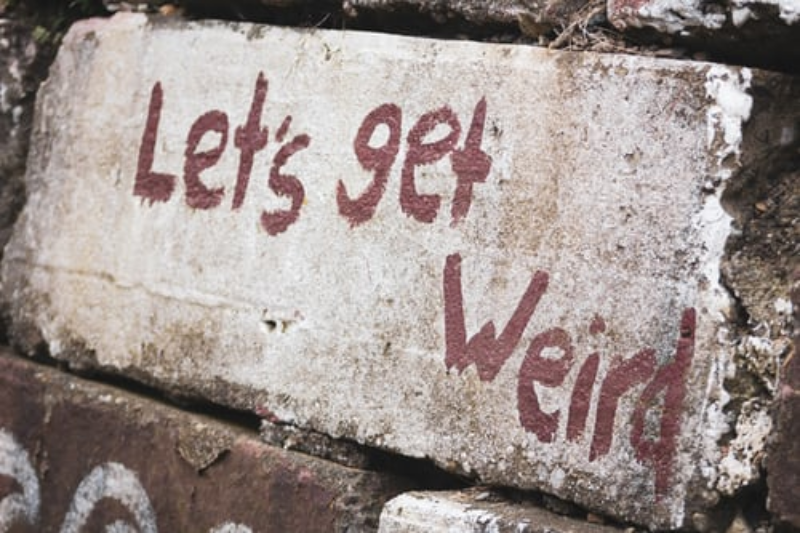 Let's get
Weird